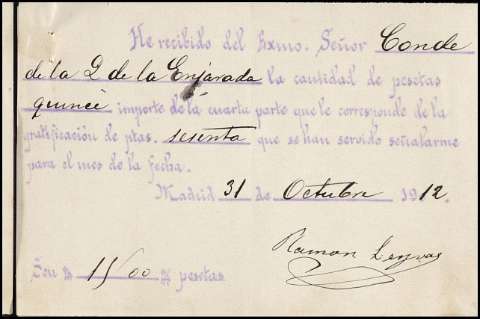 He recibido del Exmo. Señor Conde
de la Q de la Enjarada la cantidad de pesetas
quince importe de la cuarta parte que le corresponde de la
gratificación de ptas. sesenta que se han servido señalarme
para el mes de la fecha.
Madrid 31 de Octubre 1912.
Ramon
Son 15/00 pesetas